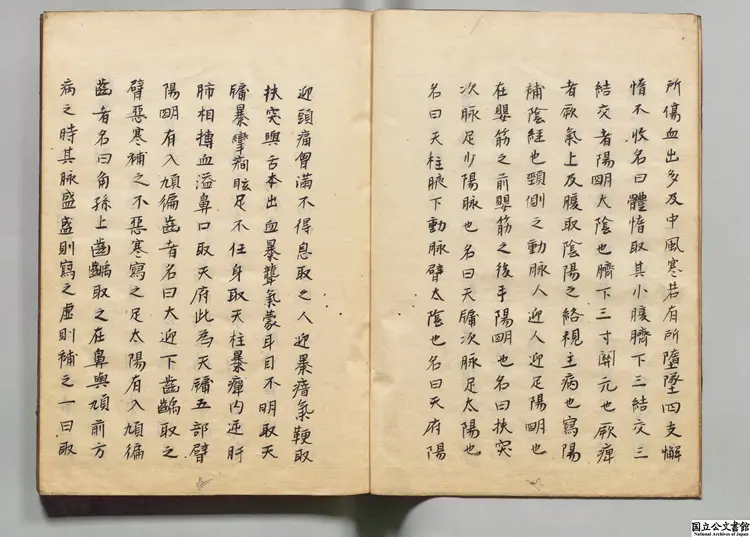 所傷血出多及中風寒若有所墮墜四支懈
惰不收名曰體惰取其小腹臍下三結交三
結交者陽明大陰也臍下三寸關元也厥痺
者厥氣上及腹取陰陽之絡視主病也寫陽
補陰經也頸側之動脉人迎人迎足陽明也
在嬰筋之前嬰筋之後手陽明也名曰扶突
次脉足少陽脉也名曰天牖次脉足太陽也
名曰天柱腋下動脉臂太陰也名曰天府陽
迎頭痛胷滿不得息取之人迎暴瘖氣鞕取
扶突與舌本出血暴聾氣蒙耳目不明取天
牖暴攣癎眩足不任身取天柱暴痺內逆肝
肺相摶血溢鼻口取天府此為天牖五部臂
陽明有入頄徧齒者名曰大迎下齒齲取之
臂惡寒補之不惡寒寫之足太陽有入頄徧
齒者名曰角孫上齒齲取之在鼻與頄前方
病之時其脉盛盛則寫之虛則補之一曰取
国立公文書館
National Archives of Japan